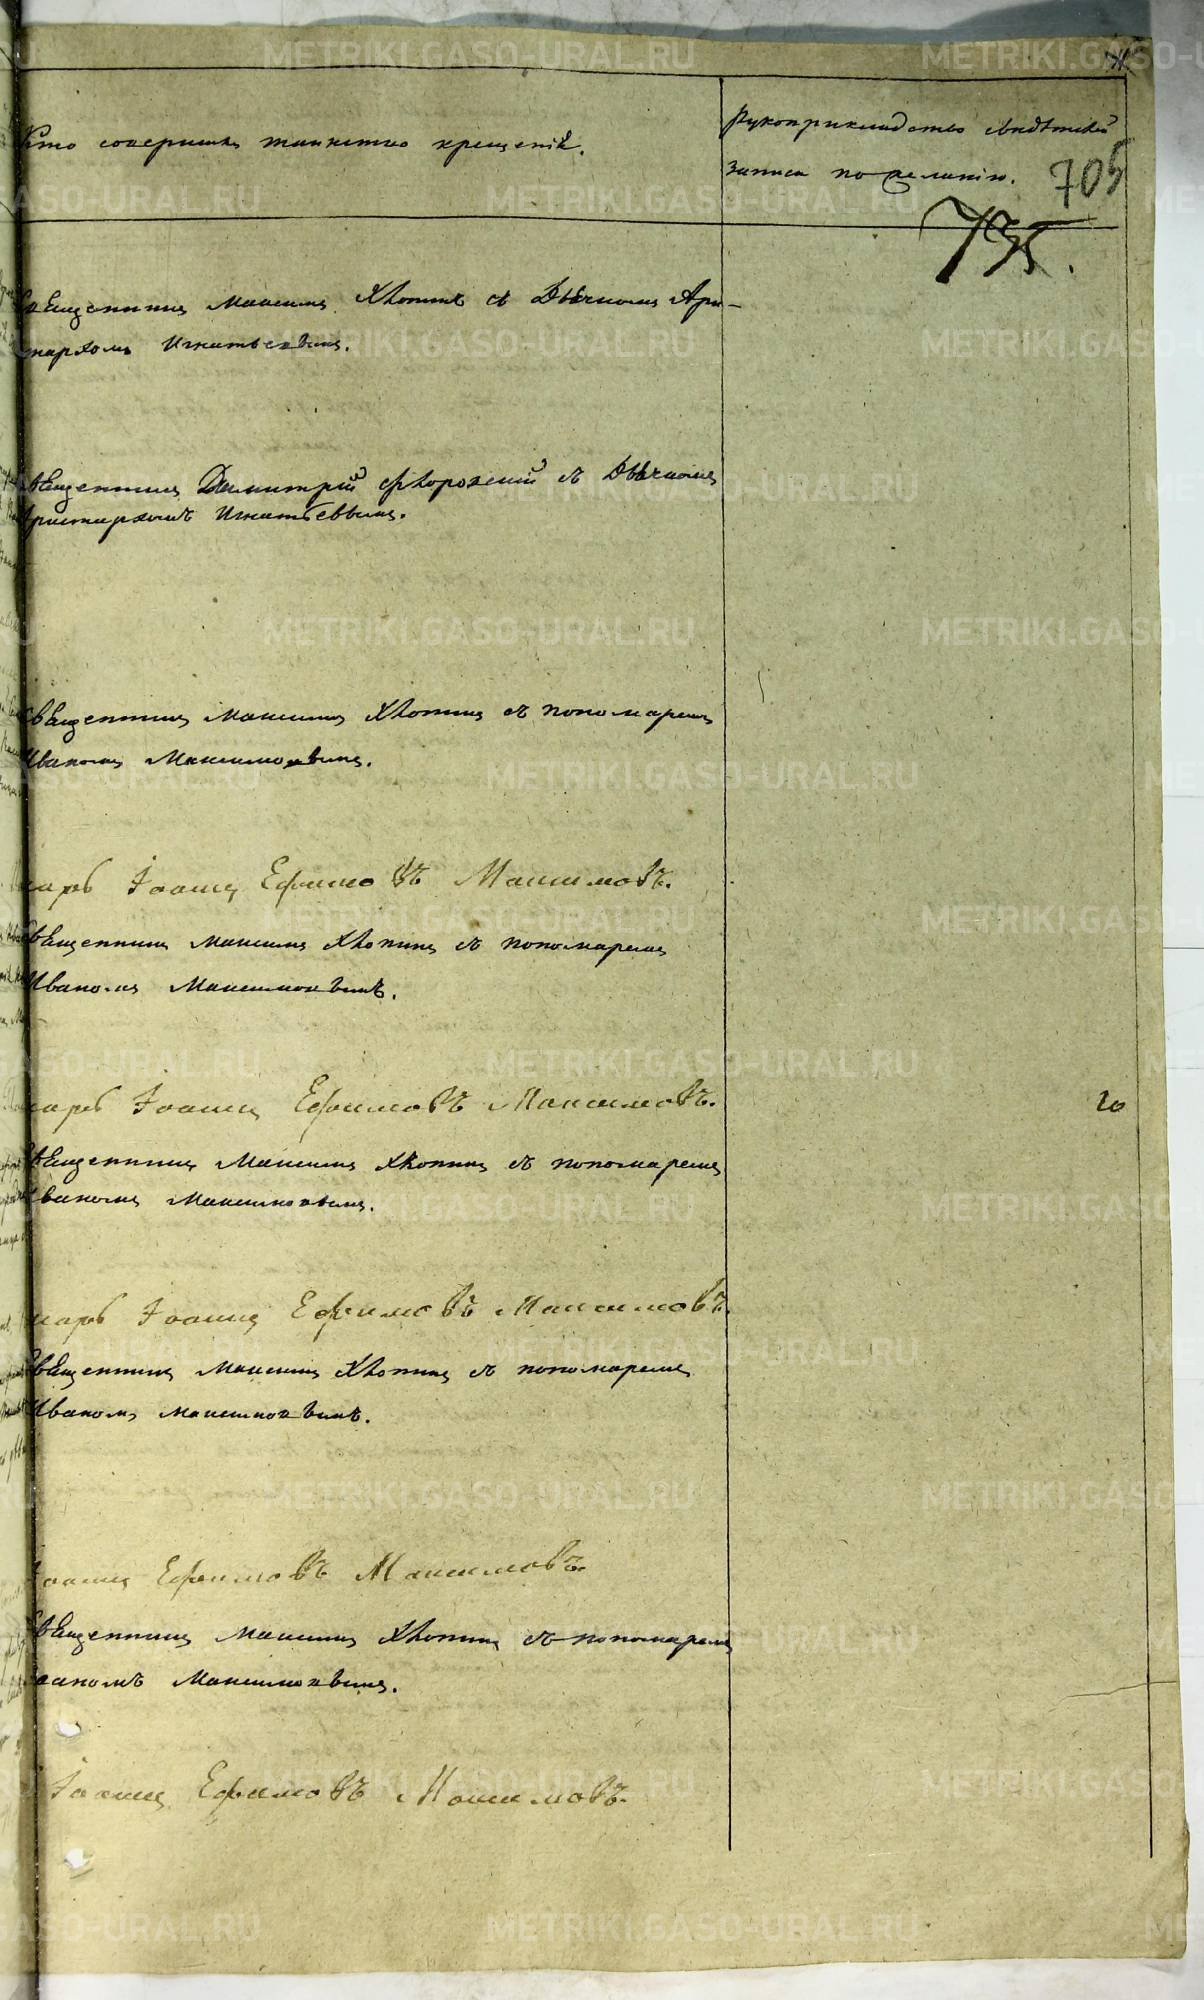 Кто совершилъ таинство крещенія.
Рукоприкладство свидѣтелей
записи по желанію.
705
735.
Священникъ Максимъ Хлопинъ съ Дьячкомъ Ари-
стархомъ Игнатьевымъ.
Священникъ Димитрій съ Дьячкомъ
Аристархомъ Игнатьевымъ.
Священникъ Максимъ Хлопинъ съ пономаремъ
Иваномъ Максимовымъ.
Іоаннъ Ефимовъ Максимовъ.
Священникъ Максимъ Хлопинъ съ пономаремъ
Иваномъ Максимовымъ.
Іоаннъ Ефимовъ Максимовъ.
20
Священникъ Максимъ Хлопинъ съ пономаремъ
Иваномъ Максимовымъ.
Іоаннъ Ефимовъ Максимовъ.
Священникъ Максимъ Хлопинъ съ пономаремъ
Иваномъ Максимовымъ.
Іоаннъ Ефимовъ Максимовъ.
Священникъ Максимъ Хлопинъ съ пономаремъ
Иваномъ Максимовымъ.
Іоаннъ Ефимовъ Максимовъ.
METRIKI.GASO-URAL.RU